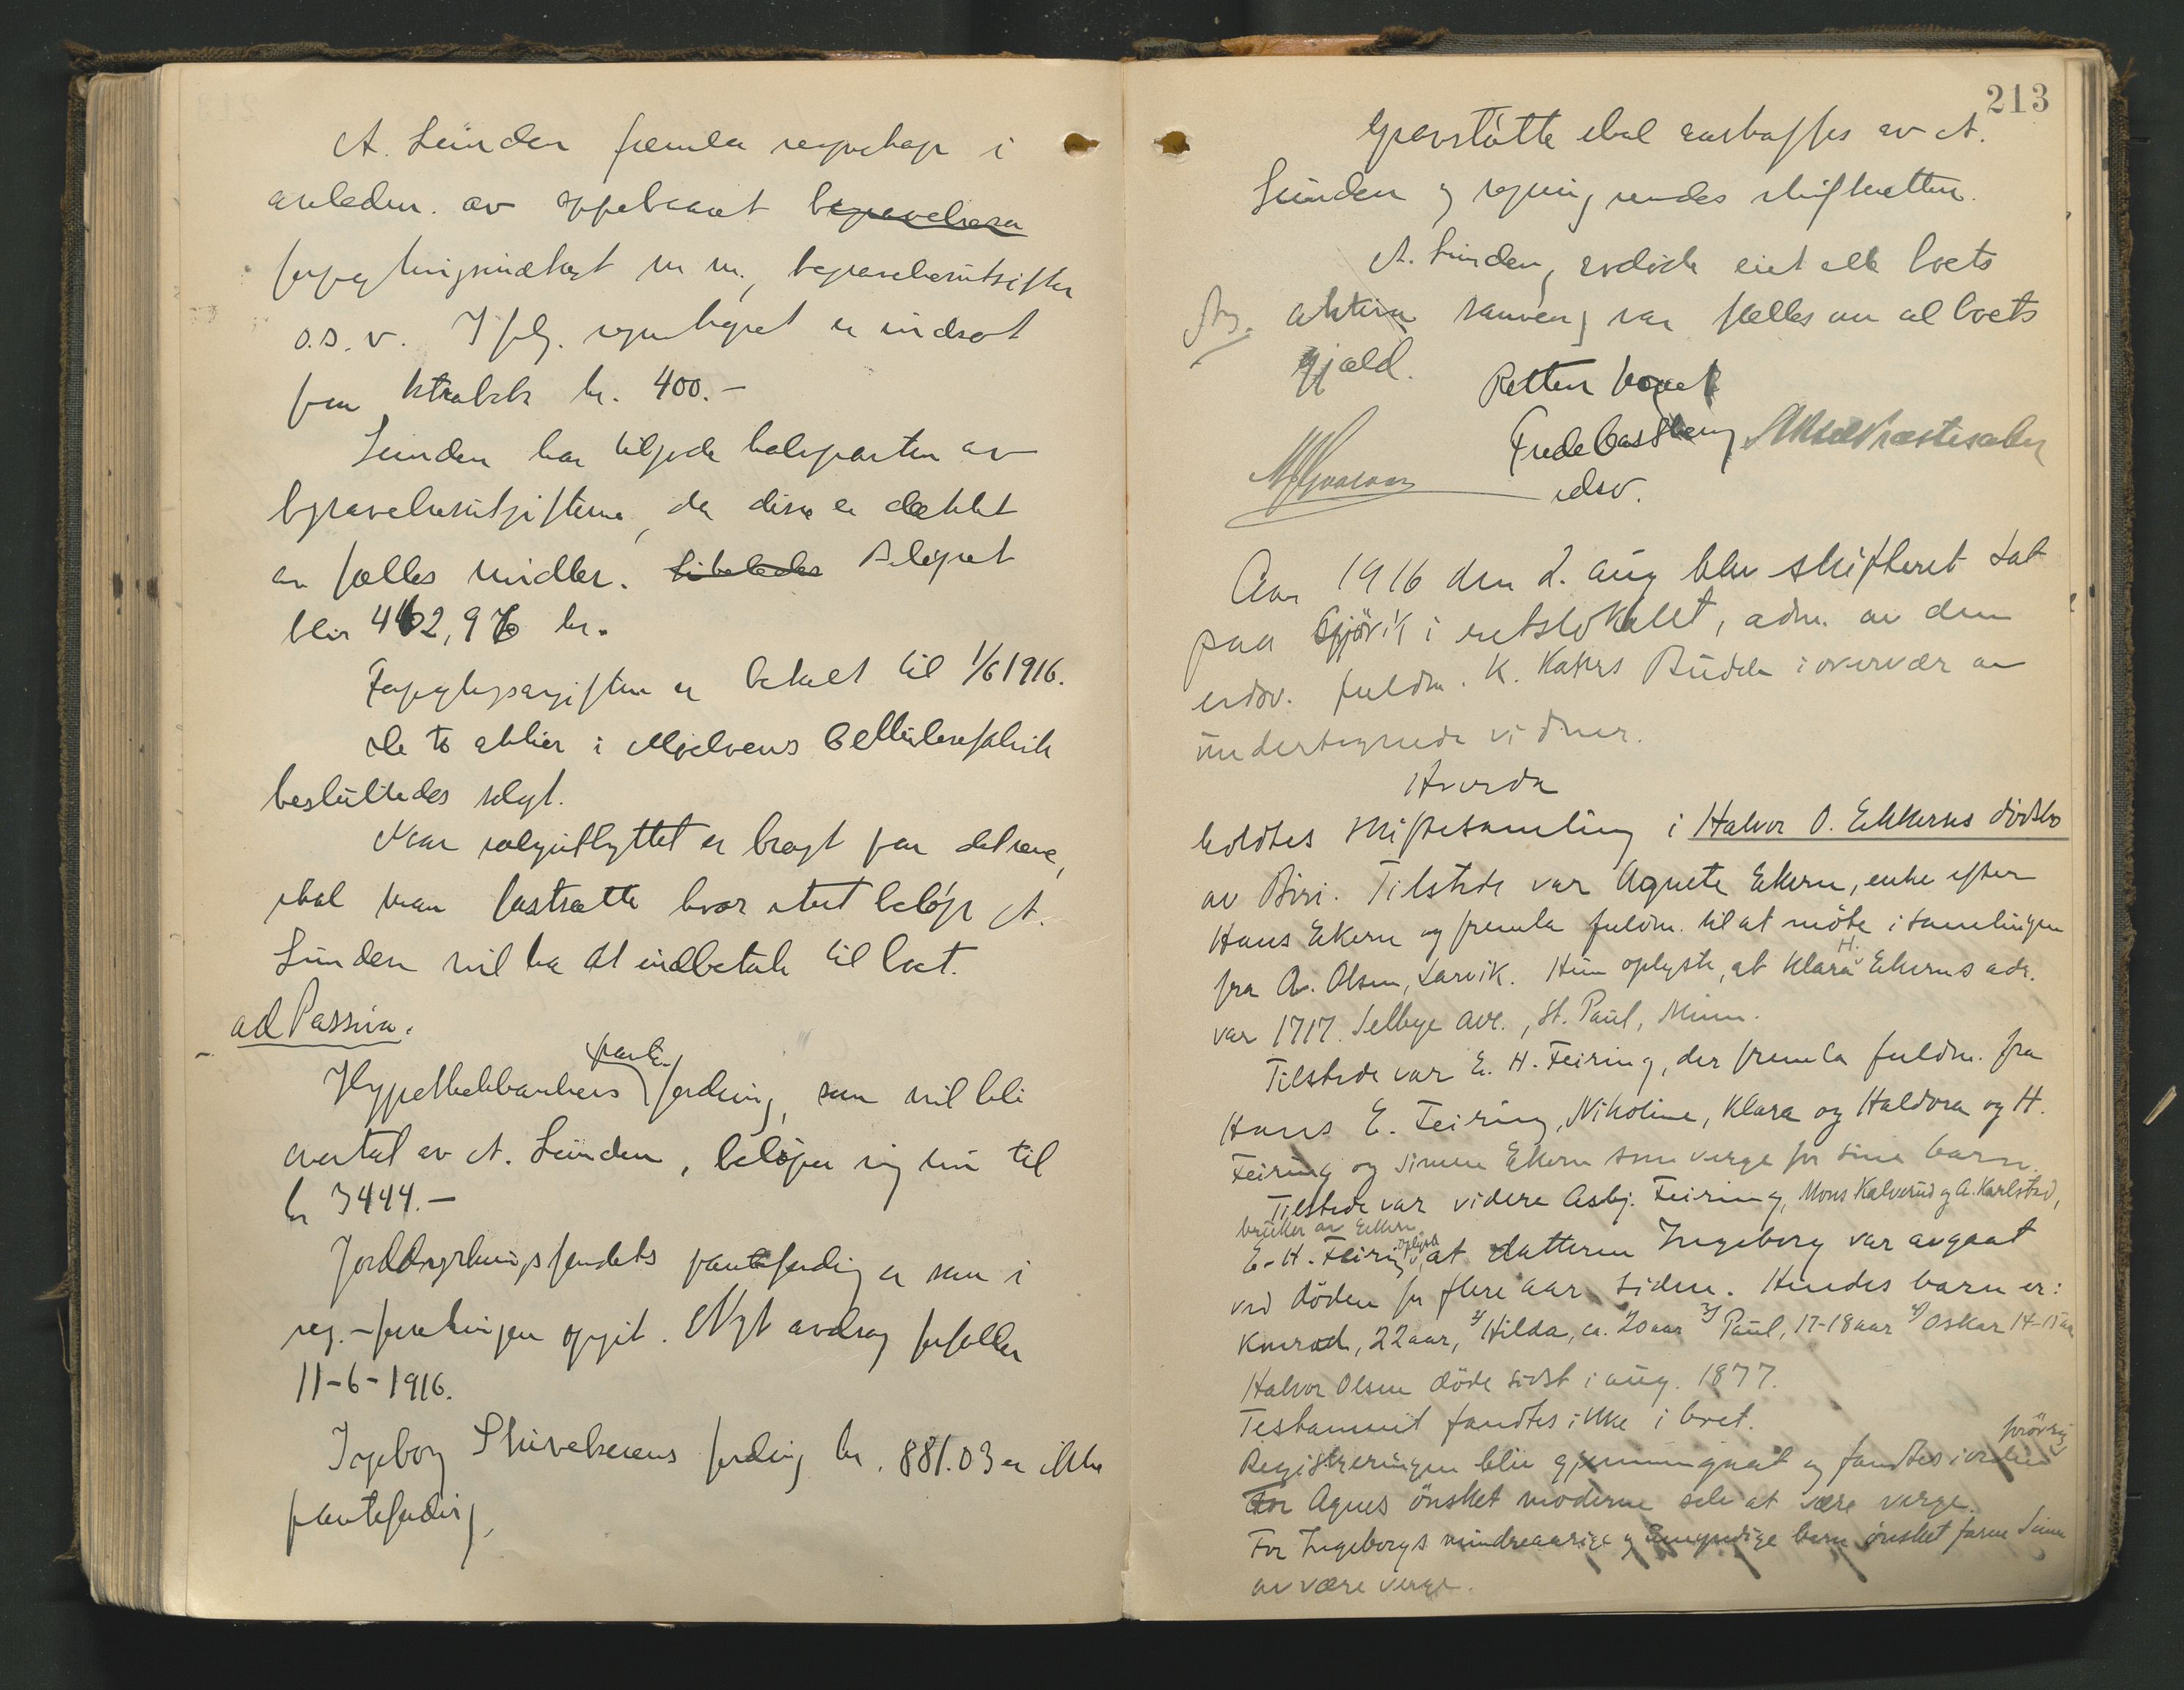 A. Linden fremla regnskap i
anledn. av oppebaaret begravelsen
forpagtningsindtægt m m, begravelsesutgifter
o.s.v. Ifølg. regnskapet er indsat
paa kr. 400.-
Linden har tilgode halvparten av
begravelsesutgifterne, da disse er dækket
av fælles midler. Likeledes Beløpet
blir 462,96 kr.
Forpagtningsavgiften er betalt til 1/6 1916.
De to aktier i Mjøelvens Cellulosefabrik
besluttedes solgt.
Naar salgsutbyttet er bragt paa det rene,
skal man fastsætte hvor stort beløp A.
Linden vil ha at indbetale til boet.
ad Passiva.
Hypothekbankens pante fordring, som vil bli
overtat av A. Linden, beløper sig nu til
kr 3444.-
Jorddyrkningsfondets pantefordring er som i
reg.-forretningen opgit. Nyt avdrag forfaller
11-6-1916.
Ingeborg fordring kr. 881.03 er ikke
pantefordring.
213
Gravstøtte skal anskaffes av A.
Linden og regning sendes skifteretten.
A. Linden, avdøde eiet alle boets
aktiva var fælles om al boets
gjæld.
Retten hævet
edsv.
Aar 1916 den 2. aug blev skifteret sat
paa Gjøvik i retslokalet, adm. av den
edsv. fuldm. K. Kahrs Budde i overvær av
undertegnede vidner.
Hvorda
holdtes skiftesamling i Halvor O. Ekkerns dødsbo
av Biri. Tilstede var Agnete Ekern, enke efter
Hans Ekern og fremla fuldm. til at møte i samlingen
fra A. Olsen, Larvik. Hun oplyste, at Klara H. Ekerns adr.
var 1717. Selbye ave., St. Paul, Minn.
Tilstede var E. H. Feiring, der fremla fuldm. fra
Hans E. Feiring, Nikoline, Klara og Haldora og H.
Feiring og Simen Ekern som verge for sine barn.
Tilstede var videre Asbj. Feiring, Mons Kalverud og A. Karlstad,
bruker av Ekkern
E. H. Feiring oplyste, at datteren Ingeborg var avgaat
ved døden for flere aar siden. Hendes barn er:
Konrad, 22 aar, 2/ Hilda, ca. 20 aar 3/ Paul, 17-18 aar 4/ Oskar 14-15 aar
Halvor Olsen døde sidst i aug. 1877.
Testament fandtes ikke i boet.
Registreringen blev gjennemgaat og fandtes iorden forøvrig
For Agnes ønsket moderen selv at være verge.
For Ingeborgs mindreaarige og umyndige barn ønsket faren Simen
av være verge.